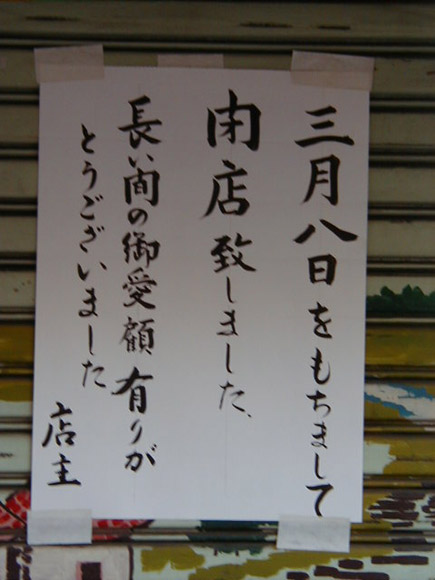 三月八日をもちまして
閉店致しました、
長い間の御愛顧有りが
とうございました
店主